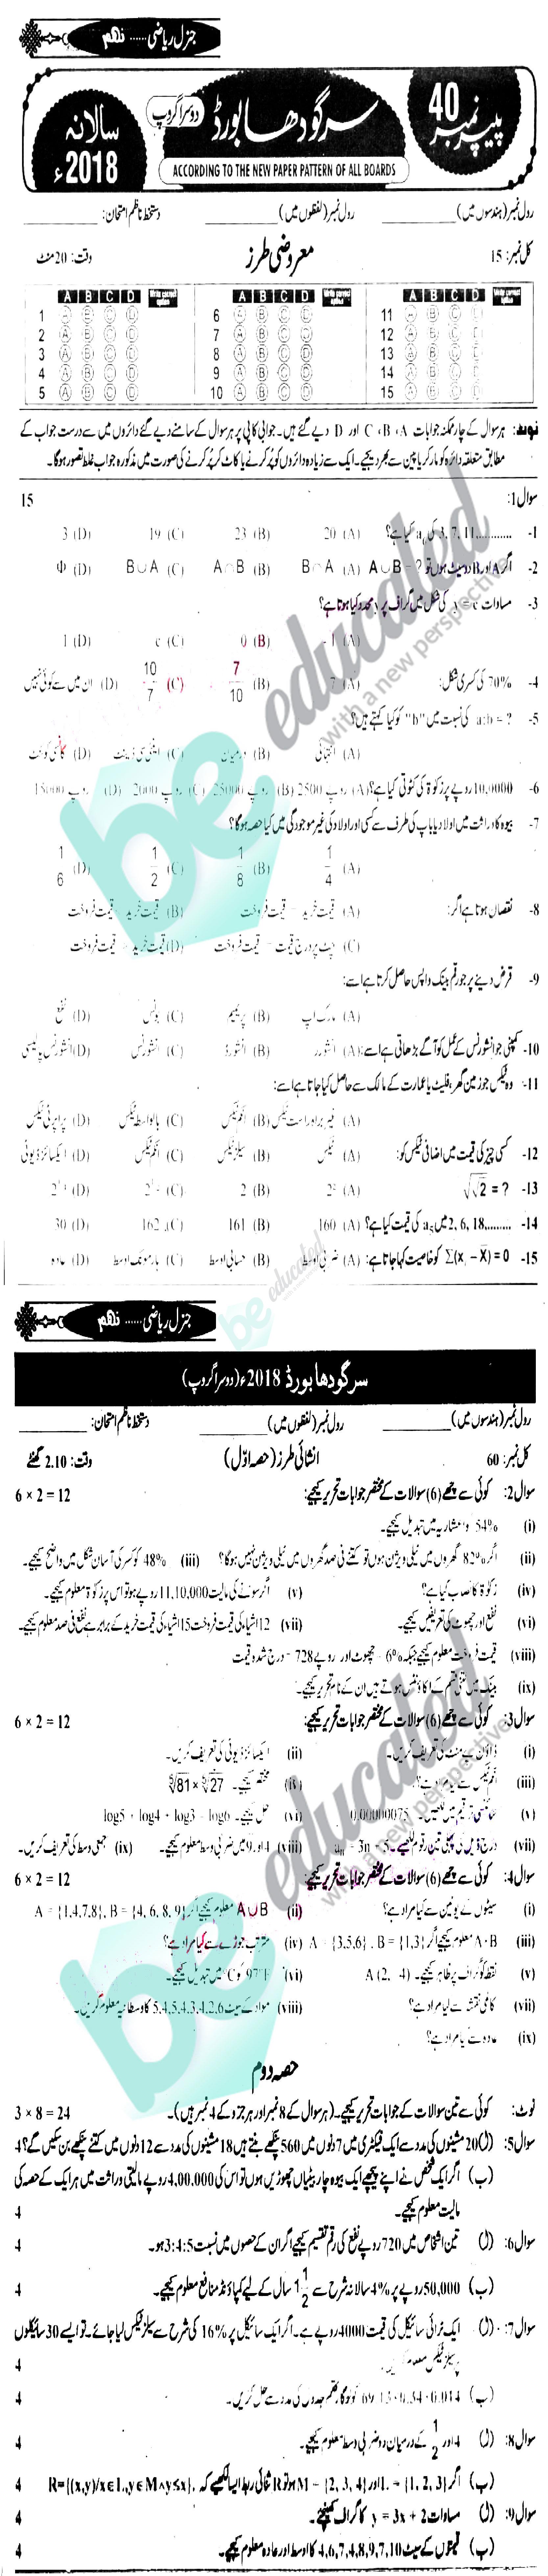 جنرل ریاضی ...... نہم
پیپر نمبر 40
سرگودھا بورڈ
دوسرا گروپ
سالانہ 2018ء
ACCORDING TO THE NEW PAPER PATTERN OF ALL BOARDS
رول نمبر (ہندسوں میں) رول نمبر (لفظوں میں) دستخط ناظم امتحان:
کل نمبر: 15 معروضی طرز وقت: 20 منٹ
A B C D A B C D A B C D
1 6 11
2 7 12
3 8 13
4 9 14
5 10 15
نوٹ: ہر سوال کے چار ممکنہ جوابات A، B، C اور D دیے گئے ہیں۔ جوابی کاپی پر ہر سوال کے سامنے دیے گئے دائروں میں سے درست جواب کے
مطابق متعلقہ دائرہ کو مارکر یا پین سے بھر دیجیے۔ ایک سے زیادہ دائروں کو پُر کرنے یا کاٹ کر پُر کرنے کی صورت میں مذکورہ جواب غلط تصور ہوگا۔
سوال 1: 15
1- 3, 7, 11,........... کی کیا ہے؟ (A) 20 (B) 23 (C) 19 (D) 3
2- اگر A اور B دو سیٹ ہوں تو A∪B = ? (A) B∩A (B) A∩B (C) B∪A (D) Φ
3- مساوات کی شکل میں گراف پر محدد کیا ہوتا ہے؟
(A) -1 (B) 0 (C) c (D) 1
4- 70% کی کسری شکل: (A) 7 (B) 7/10 (C) 10/7 (D) ان میں سے کوئی نہیں
5- a:b = ? کی نسبت میں "b" کو کیا کہتے ہیں؟
(A) ابتدائی (B) درمیان (C) اینٹی سیڈینٹ (D) کانسی کوینٹ
6- 10,0000 روپے پر زکوٰۃ کی کٹوتی کیا ہے؟ (A) 2500 روپے (B) 25000 روپے (C) 2000 روپے (D) 15000 روپے
7- بیوہ کا وراثت میں اولاد یا باپ کی طرف سے کسی اور اولاد کی غیر موجودگی میں کیا حصہ ہوگا؟
(A) 1/4 (B) 1/8 (C) 1/2 (D) 1/6
8- نقصان ہوتا ہے اگر: (A) قیمت خرید قیمت فروخت (B) قیمت خرید قیمت فروخت
(C) چٹ پر درج قیمت قیمت فروخت (D) قیمت خرید قیمت فروخت
9- قرض دینے پر جو رقم بینک واپس حاصل کرتا ہے اسے:
(A) مارک اپ (B) پریمیم (C) بونس (D) نفع
10- کمپنی جو انشورنس کے عمل کو آگے بڑھاتی ہے اسے: (A) انشورر (B) انشورڈ (C) انشورنس (D) انشورنس پالیسی
11- وہ ٹیکس جو زمین گھر، فلیٹ یا عمارت کے مالک سے حاصل کیا جاتا ہے اسے:
(A) غیر براہ راست ٹیکس (B) انکم ٹیکس (C) بالواسطہ ٹیکس (D) پراپرٹی ٹیکس
12- کسی چیز کی قیمت میں اضافی ٹیکس کو: (A) ٹیکس (B) سیلز ٹیکس (C) انکم ٹیکس (D) ایکسائز ڈیوٹی
13- √√2 = ? (B) 2
14- 2, 6, 18,........ میں a₅ کی قیمت کیا ہے؟ (A) 160 (B) 161 (C) 162 (D) 30
15- Σ(xᵢ − X̄) = 0 کو خاصیت کہا جاتا ہے: (A) ضربی اوسط (B) حسابی اوسط (C) ہارمونک اوسط (D) عادہ
be educated
with a new perspective
جنرل ریاضی ...... نہم
سرگودھا بورڈ 2018ء (دوسرا گروپ)
رول نمبر (ہندسوں میں) رول نمبر (لفظوں میں) دستخط ناظم امتحان:
کل نمبر: 60 انشائی طرز (حصہ اوّل) وقت: 2.10 گھنٹے
سوال 2: کوئی سے چھے (6) سوالات کے مختصر جوابات تحریر کیجیے: 6 × 2 = 12
(i) 54% کو اعشاریہ میں تبدیل کیجیے۔
(ii) اگر 82% گھروں میں ٹیلی ویژن ہوں تو کتنے فی صد گھروں میں ٹیلی ویژن نہیں ہوگا؟ (iii) 48% کو کسر کی آسان شکل میں واضح کیجیے۔
(iv) زکوٰۃ کا نصاب کیا ہے؟ (v) اگر سونے کی مالیت 11,10,000 روپے ہو تو اس پر زکوٰۃ معلوم کیجیے۔
(vi) نفع اور چھوٹ کی تعریفیں کیجیے۔ (vii) 12 اشیاء کی قیمت فروخت 15 اشیاء کی قیمت خرید کے برابر ہے نفع فی صد معلوم کیجیے۔
(viii) قیمت فروخت معلوم کیجیے جبکہ 6% = چھوٹ اور روپے 728 = درج شدہ قیمت
(ix) بینک میں کتنی قسم کے اکاؤنٹس ہوتے ہیں ان کے نام تحریر کیجیے۔
سوال 3: کوئی سے چھے (6) سوالات کے مختصر جوابات تحریر کیجیے: 6 × 2 = 12
(i) ڈاؤن پے منٹ کی تعریف کریں۔ (ii) ایکسائز ڈیوٹی کی تعریف کریں۔
(iii) انکم ٹیکس سے کیا مراد ہے؟ (iv) مختصر کیجیے۔
(v) سائنسی ترقیم میں لکھیں۔ 0.00000075 (vi) حل کیجیے۔ log5 + log4 + log3 − log6
(vii) درج ذیل کی پہلی تین رقوم لکھیے۔ aₙ = 3n − 5 (viii) 4 اور 9 میں ضربی وسط معلوم کیجیے۔ (ix) جمعی وسط کی تعریف کریں۔
سوال 4: کوئی سے چھے (6) سوالات کے مختصر جوابات تحریر کیجیے: 6 × 2 = 12
(i) سیٹوں کے یونین سے کیا مراد ہے؟ (ii) A∪B معلوم کیجیے اگر A = {1,4,7,8}, B = {4, 6, 8, 9}
(iii) A·B معلوم کیجیے اگر A = {3,5,6}, B = {1,3} (iv) مترتب جوڑے سے کیا مراد ہے؟
(v) نقطہ کو گراف پر ظاہر کیجیے۔ A (2, -4) (vi) 97°F کو °C میں تبدیل کیجیے۔
(vii) کالمی نقشہ سے کیا مراد ہے؟ (viii) مواد کے سیٹ 5,4,5,4,3,4,2,6 کا وسطانیہ معلوم کریں۔
(ix) عادہ سے کیا مراد ہے؟
حصہ دوم
نوٹ: کوئی سے تین سوالات کے جوابات تحریر کیجیے۔ (ہر سوال کے 8 نمبر اور ہر جزو کے 4 نمبر ہیں)۔ 3 × 8 = 24
سوال 5: (ا) 20 مشینوں کی مدد سے ایک فیکٹری میں 7 دنوں میں 560 پنکھے بنتے ہیں 18 مشینوں کی مدد سے 12 دنوں میں کتنے پنکھے بن سکیں گے؟ 4
(ب) اگر ایک شخص نے اپنے پیچھے ایک بیوہ چار بیٹیاں چھوڑیں ہوں تو اس کی 4,00,000 روپے مالیتی وراثت میں ہر ایک کے حصہ کی
مالیت معلوم کیجیے۔ 4
سوال 6: (ا) تین اشخاص میں 720 روپے نفع کی رقم تقسیم کیجیے اگر ان کے حصوں میں نسبت 3:4:5 ہو۔ 4
(ب) 50,000 روپے پر 4% سالانہ شرح سے 1 1/2 سال کے لیے کمپاؤنڈ منافع معلوم کیجیے۔ 4
سوال 7: (ا) ایک ٹرائی سائیکل کی قیمت 4000 روپے ہے۔ اگر ایک سائیکل پر 16% کی شرح سے سیلز ٹیکس لیا جائے۔ تو ایسے 30 سائیکلوں
پر سیلز ٹیکس معلوم کریں۔ 4
(ب) 69.13 × 0.34 × 0.014 کو لوگارتھم جدولوں کی مدد سے حل کریں۔ 4
سوال 8: (ا) 4 اور 1/2 کے درمیان دو ضربی وسط معلوم کیجیے۔ 4
(ب) اگر L = {1, 2, 3} اور M = {2, 3, 4} ہو تو R ثنائی ربط ایسا لکھیے کہ R={(x,y)/x∈L, y∈M∧y≤x}, 4
سوال 9: (ا) مساوات y = 3x + 2 کا گراف کھینچیے۔ 4
(ب) قیمتوں کے سیٹ 4,6,7,4,8,9,7,10 کا اوسط اور عادہ معلوم کیجیے۔ 4